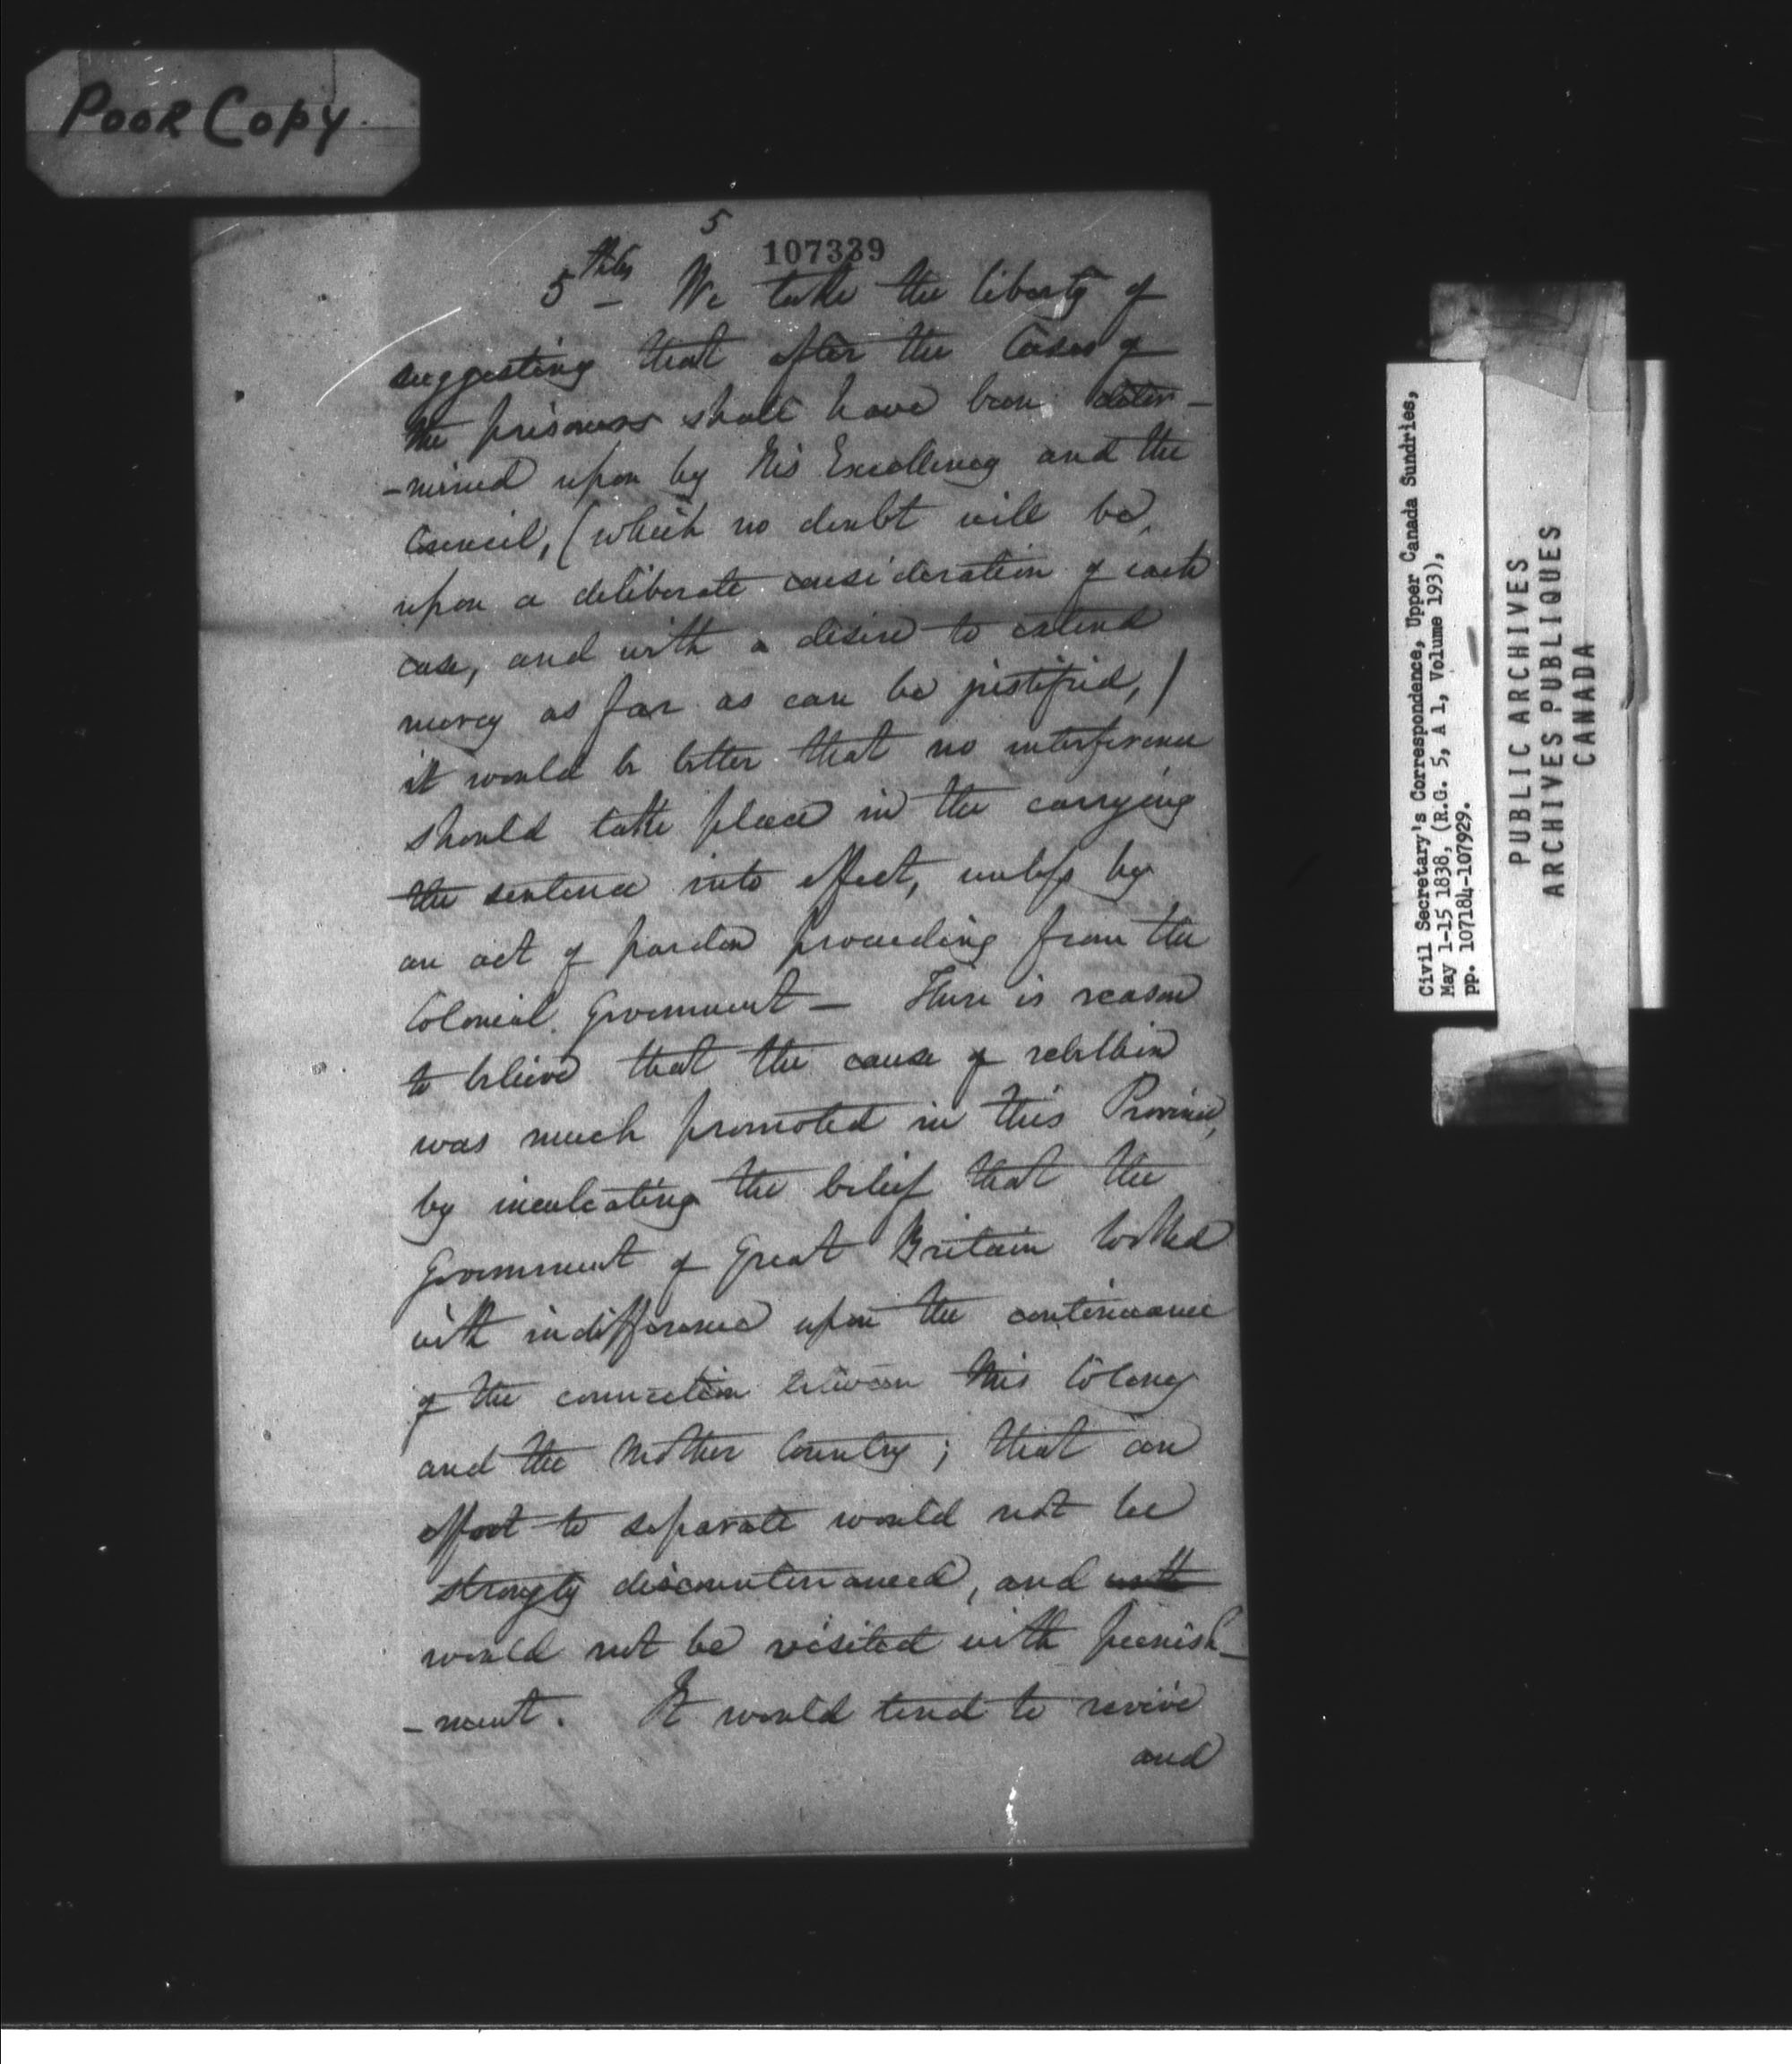 POOR COPY.
5
107339
5thly - We take the liberty of
suggesting that after the Cases of
the prisoners shall have been deter-
-mined upon by His Excellency and the
Council, (which no doubt will be,
upon a deliberate consideration of each
case, and with a desire to extend
mercy as far as can be justified,)
it would be better that no interference
should take place in the carrying
the sentence into effect, unless by
an act of pardon proceeding from the
Colonial Government - There is reason
to believe that the cause of rebellion
was much promoted in this Province,
by inculcating the belief that the
Government of Great Britain looked
with indifference upon the continuance
of the connection between this Colony
and the Mother Country; that an
effort to separate would not be
strongly discountenanced, and with
would not be visited with punish-
-ment. It would tend to revive
and
Civil Secretary's Correspondence, Upper Canada Sundries,
May 1-15 1838, (R.G. 5, A 1, Volume 193),
pp. 107184-107929.
PUBLIC ARCHIVES
ARCHIVES PUBLIQUES
CANADA